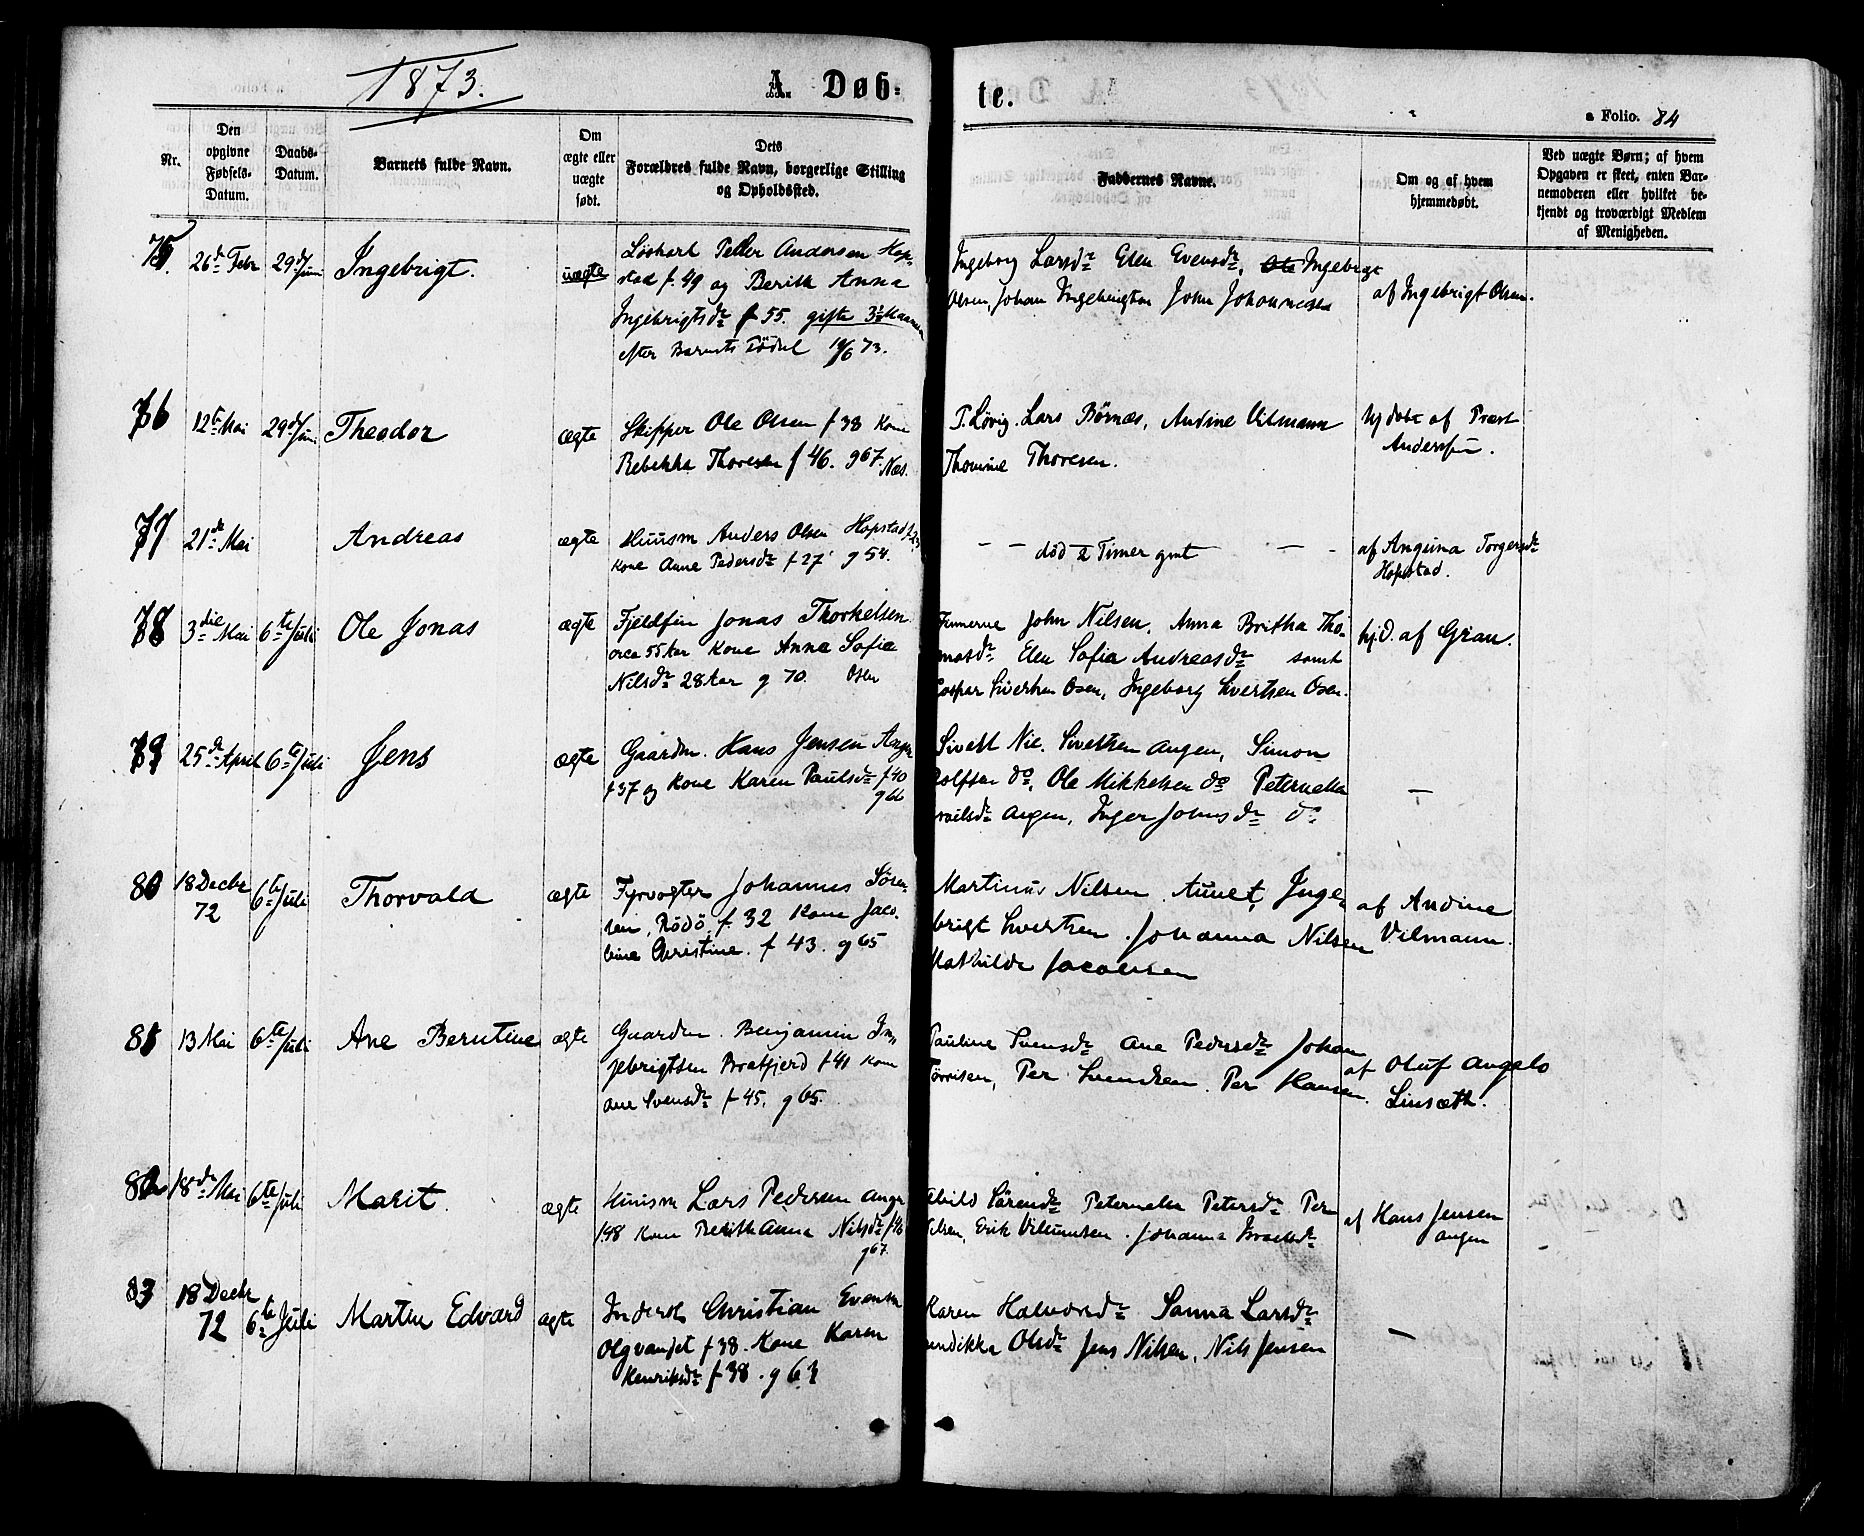 1873.
A. Døb-
te.
a Folio. 84
Nr.
Den
opgivne
Fødsels-
Datum.
Daabs-
Datum.
Barnets fulde Navn.
Om
ægte eller
uægte
født.
Dets
Forældres fulde Navn, borgerlige Stilling
og Opholdssted.
Faddernes Navne.
Om og af hvem
hjemmedøbt.
Ved uægte Børn; af hvem
Opgaven er skeet, enten Bar-
nemoderen eller hvilket be-
kjendt og troværdigt Medlem
af Menigheden.
75
26de Febr
29de Juni
Ingebrigt.
uægte
Løskarl Peder Andersen Hop-
stad f. 49 og Berith Anna
Ingebrigtsdr f 55. gifte 3½ Maaned
efter Barnets Fødsel 10/6 73.
Ingeborg Larsdr Elen Evensdr, Ole Ingebrigt
Olsen, Johan Ingebrigtsen John Johannessen
af Ingebrigt Olsen.
76
12te Mai
29de Juni
Theodor
ægte
Skipper Ole Olsen f 38 Kone
Rebekka Thoresen f 46. g 67. Næs.
P. Løvig. Lars Børnæs, Andine Vilmann
Thomine Thoresen.
hjdøbt af Præst
Anderssen.
77
21de Mai
Andreas
ægte
Huusm Anders Olsen Hopstad
Kone Anne Pedersdr f 27 g 54.
— — død 2 Timer gml — -
af Anguna Torgersdr
Hopstad.
78
3die Mai
6te Juli
Ole Jonas
ægte
Fjeldfin Jonas Thorkelsen
circa 55 Aar Kone Anna Sofie
Nilsdr 28 Aar g 70. Osen
Finnerne John Nilsen, Anna Britha Tho-
masdr Elen Sofia Andreasdr samt
Kaspar Sivertsen Osen, Ingeborg Sivertsen Osen.
hjd. af Gran.
79
25de April
6te Juli
Jens
ægte
Gaardm. Hans Jensen Angen
f 37 og Kone Karen Paulsdr f 40
g 66
Sivert Nic. Sivertsen Angen, Simon
Rolfsen do, Ole Mikkelsen do Peternella
Angen, Inger Johnsdr do
—
80
18 Decbr
72
6te Juli
Thorvald
ægte
Fyrvogter Johannes Søren-
sen, Rødø. f. 32 Kone Jaco-
bine Christine. f 43. g 65
Martinus Nilsen Aunet, Inge-
brigt Sivertsen. Johanna Nilsen
Mathilde Jacobsen
af Andine
Vilmann.
81
13 Mai
6te Juli
Ane Berntine
ægte
Gaardm. Benjamin In-
gebrigtsen Bratfjerd f 41 Kone
Ane Svensdr f 45. g 65.
Pauline Svensdr Ane Pedersdr Johan
Tørrisen, Per Svendsen. Per Hansen.
af Oluf Angelo
Linsæth.
82
18de Mai
6te Juli
Marit.
ægte
Huusm Lars Pedersen Angen
f 48 Kone Berith Anna Nilsdr f 46
g 67.
Sørensdr Peternella Petersdr Per
Nilsen, Erik Villumsen. Johanna Israelsdr
af Hans Jensen
Angen
83
18 Decbr
72
6te Juli
Martin Edvard
ægte
Inderst Christian Evensen
Olgvandet f 38. Kone Karen
Henriksdr f 38. g 63
Karen Halvorsdr Sanna Larsdr
Olsdr Jens Nilsen, Nils Jensen
—